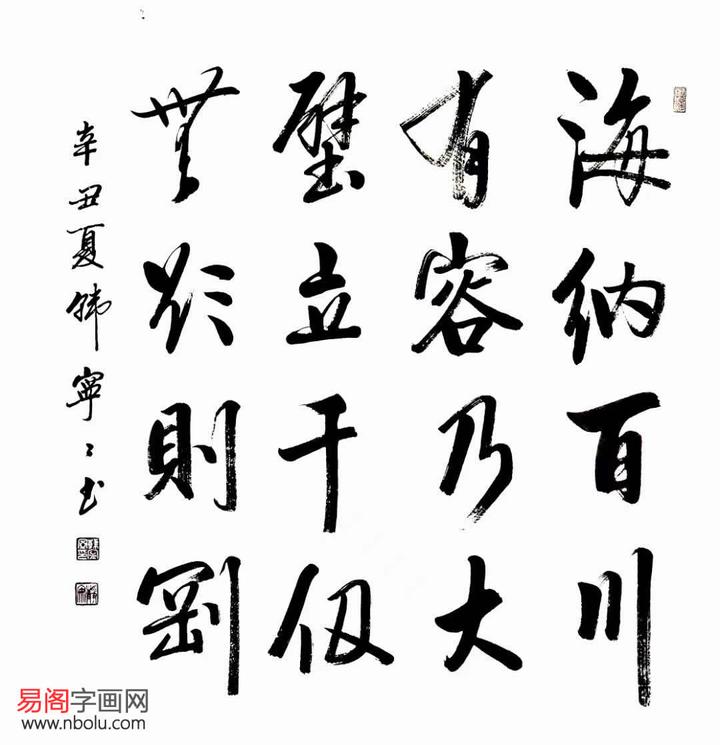 海纳百川
有容乃大
壁立千仞
無欲則剛
辛丑夏韩寧寧书
易阁字画网
www.nbolu.com